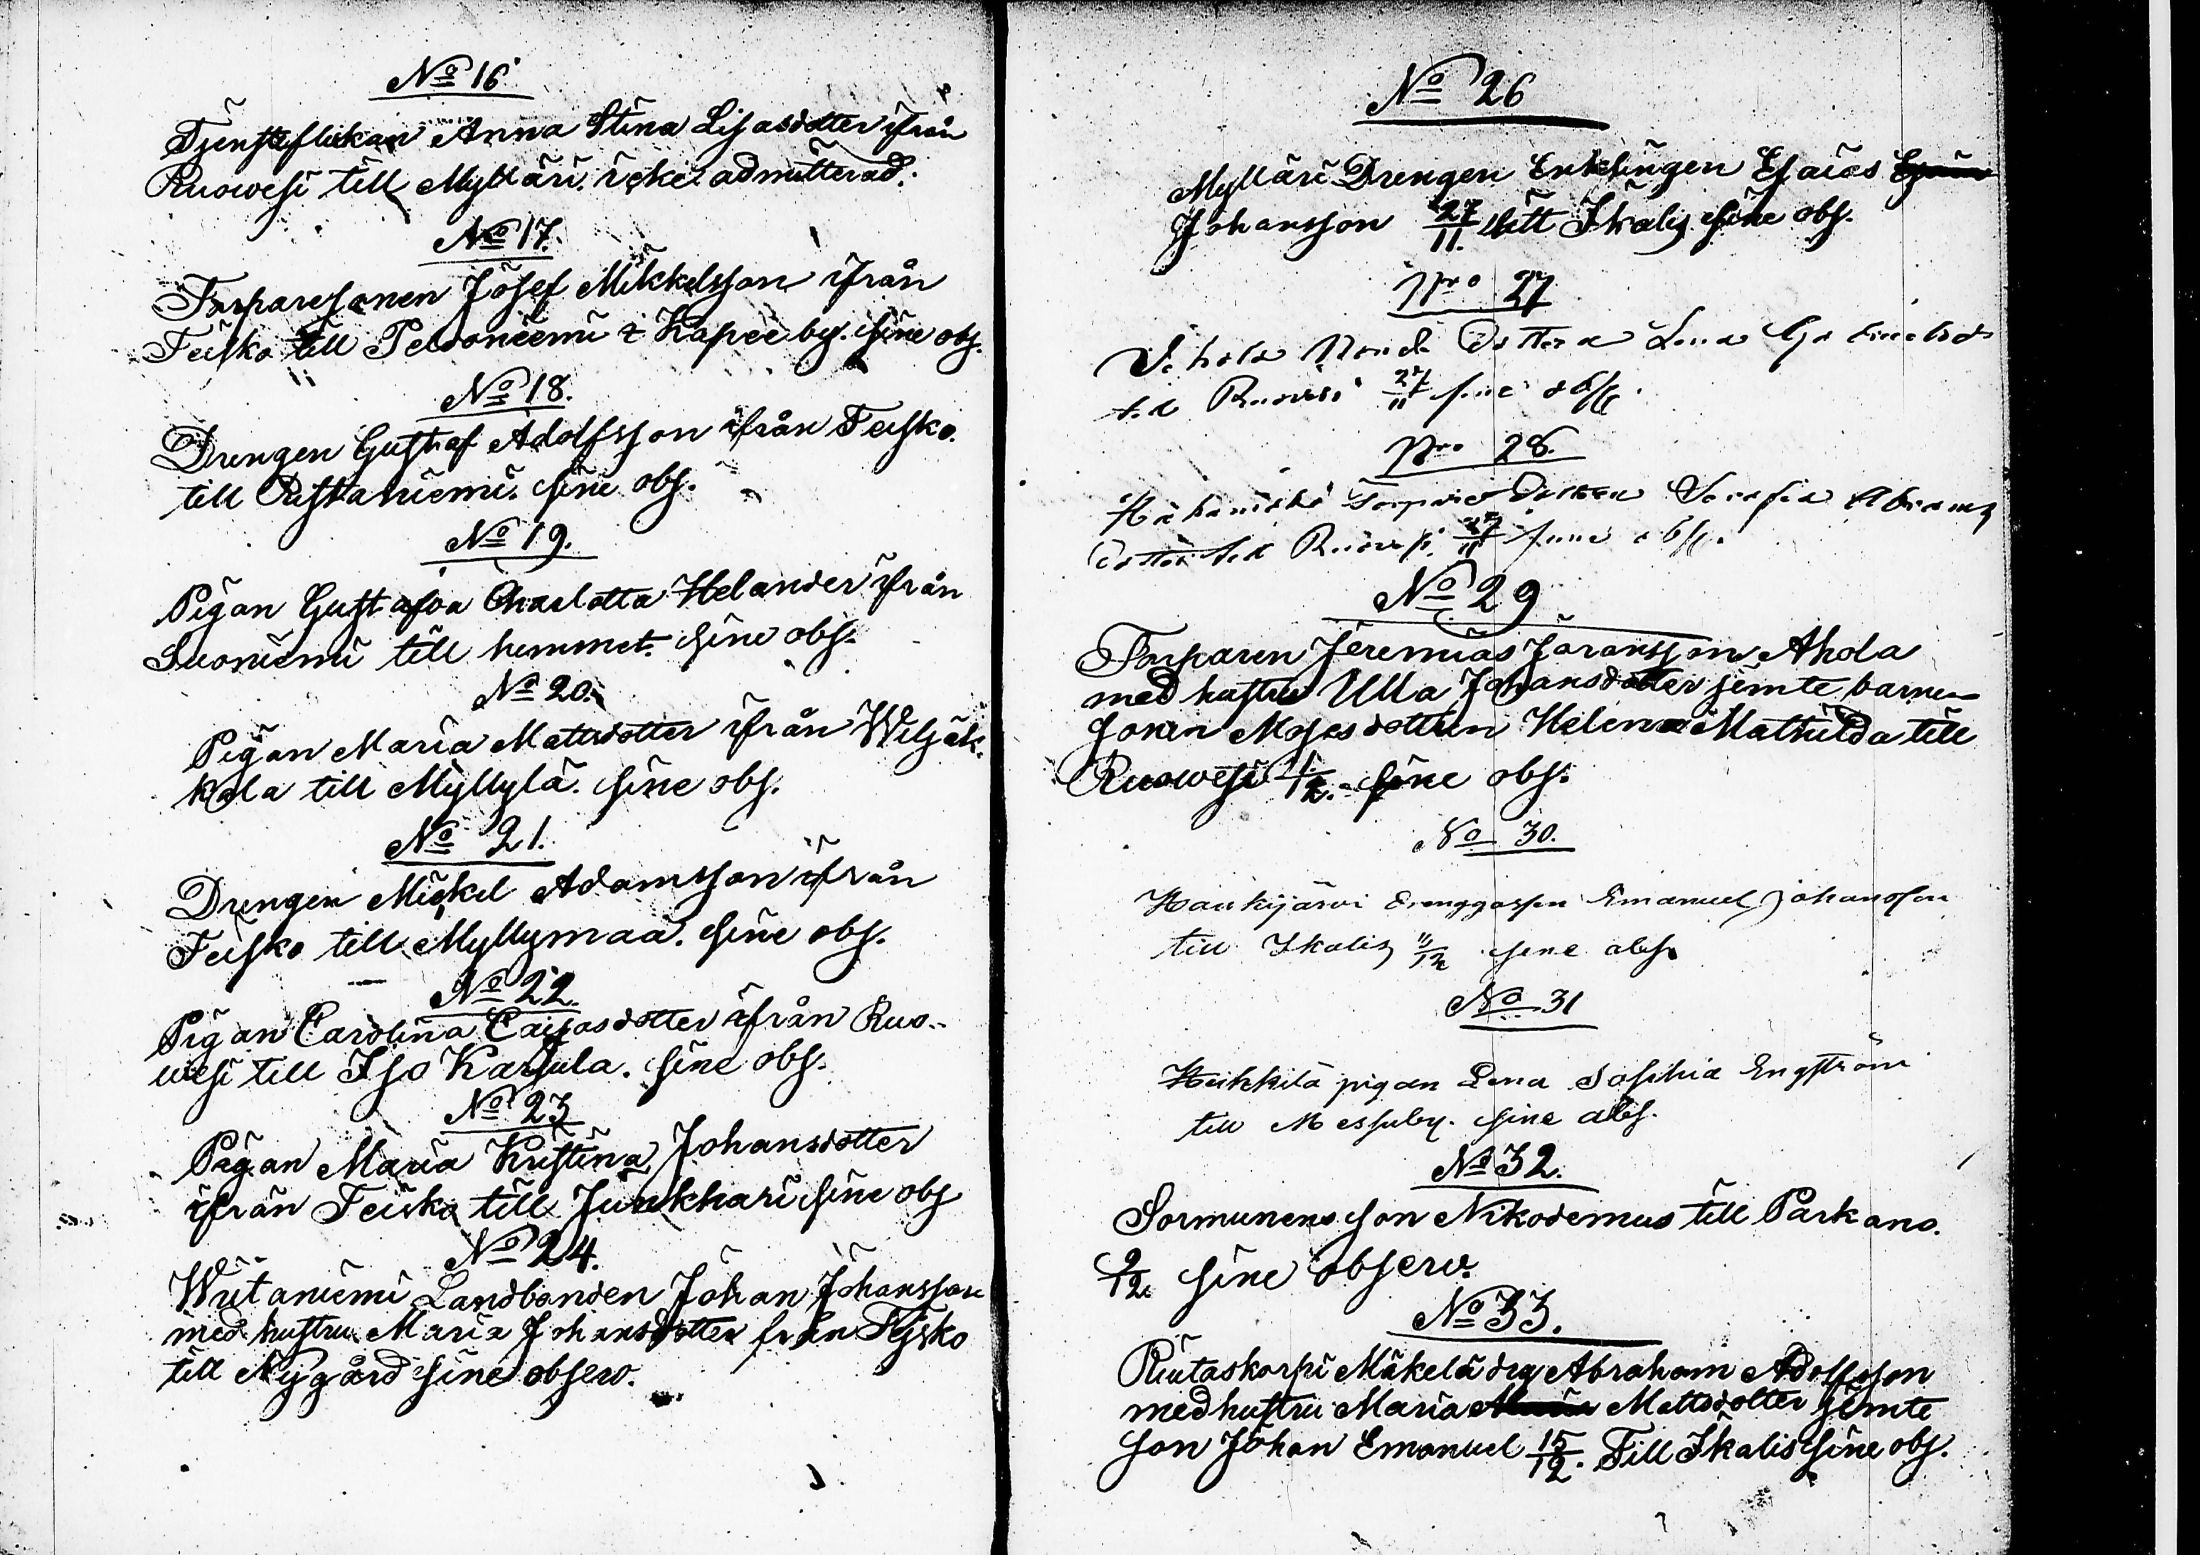 No 16.
Tjensteflickan Anna Stina Lisasdotter ifrån
Ruowesi till Mylläri. icke admitterad.
No 17.
Torparesonen Josef Mikkelsson ifrån
Teisko till Peltoniemi i Kapee by. sine obs.
No 18.
Drengen Gustaf Adolfsson ifrån Teisko.
till Ristaniemi. sine obs.
No 19.
Pigan Gustafva Charlotta Helander ifrån
Suoniemi till hemmet. sine obs.
No 20.
Pigan Maria Mattsdotter ifrån Wiljak-
kala till Myllylä. sine obs.
No 21.
Drengen Mickel Adamsson ifrån
Teisko till Myllymaa. sine obs.
No 22.
Pigan Carolina Caisasdotter ifrån Ruo-
wesi till Iso Karhula. sine obs.
No 23
Pigan Maria Kristina Johansdotter
ifrån Teisko till Junkhari sine obs
No 24.
Wiitaniemi Landbonden Johan Johansson
med hustru Maria Johansdotter från Tejsko
till Nygård sine observ.
No 26
Mylläri Drengen Enklingen Esaias
Johansson 27/11. till Ikalis sine obs.
Nro 27
dottern Lena
till Ruovesi 27/11 sine obs.
Nro 28.
Torpare dottern Serafia Abrams
dotter till Ruovesi 27/11 sine obs.
No 29
Torparen Jeremias Jöransson Ahola
med hustru Ulla Johansdotter jemte barnen
sonen Moses dottren Helena Mathilda till
Ruowesi 1/12. sine obs.
No 30.
Haukijärvi drenggossen Emanuel Johansson
till Ikalis 11/12 sine obs.
No 31
Heikkilä pigan Lena Sofihia Engström
till Messuby. sine obs.
No 32.
Sormunens son Nikodemus till Parkano.
9/12 sine observ.
No 33.
Riutaskorpi Mäkelä drg Abraham Adolfsson
med hustru Maria Mattsdotter jemte
son Johan Emanuel 15/12. Till Ikalis sine obs.